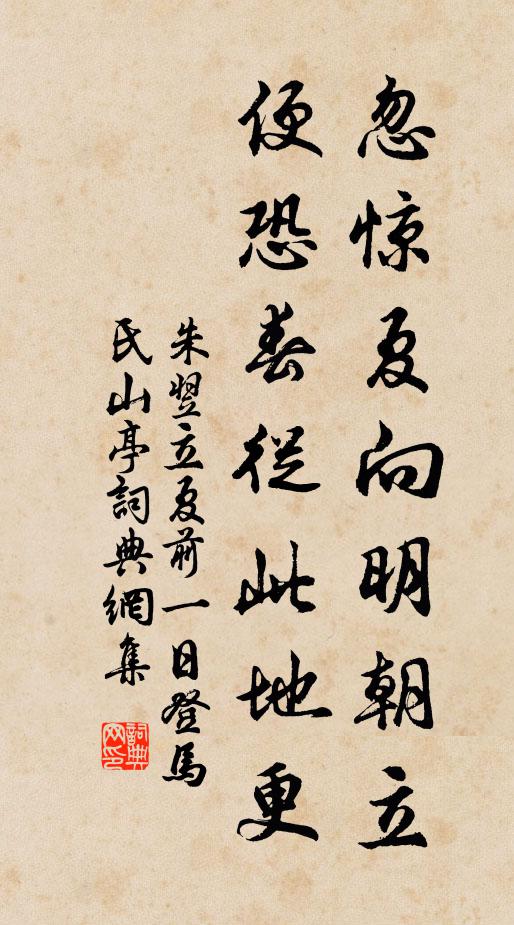 忽惊夏向明朝立
便恐春從此地更
朱翌立夏前一日登馬
氏山亭詞典網集
詞典
网印